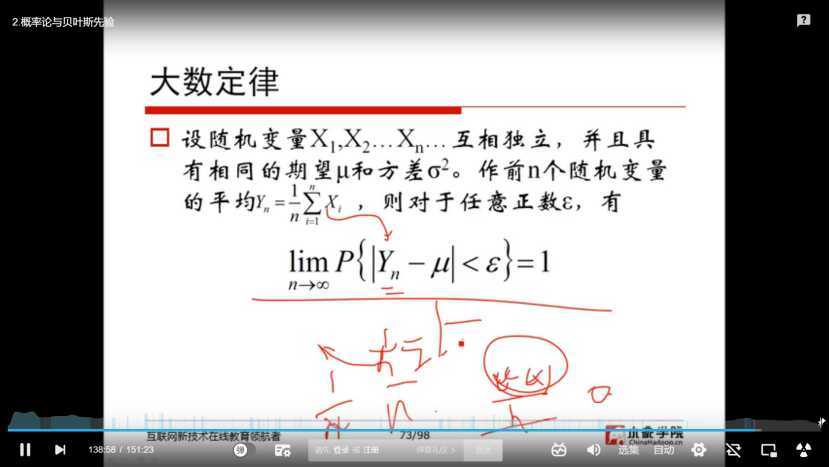 2.概率论与贝叶斯先验
大数定律
设随机变量X₁,X₂…Xₙ…互相独立，并且具
有相同的期望μ和方差σ²。作前n个随机变量
的平均 Yₙ = 1/n ∑ᵢ₌₁ⁿ Xᵢ ，则对于任意正数ε，有
lim n→∞ P{|Yₙ − μ| < ε} = 1
互联网新技术在线教育领航者
73/98
小象学院
ChinaHadoop.cn
138:58 / 151:23
弹
请先 登录 或 注册
选集
自动